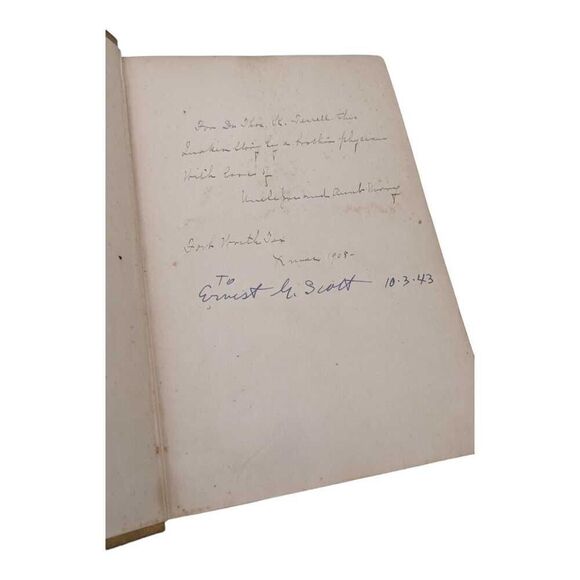 For Dr Thos. C. Terrell this
Quaker Story by a brother physician
With Love of
Uncle Joe and Aunt Mary
Fort Worth Tex
Xmas 1905-
To
Ernest G. Scott 10.3.43